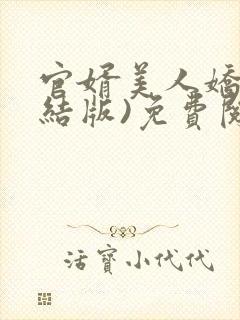 官婿美人嬌
結版)免費閱
活寶小代代